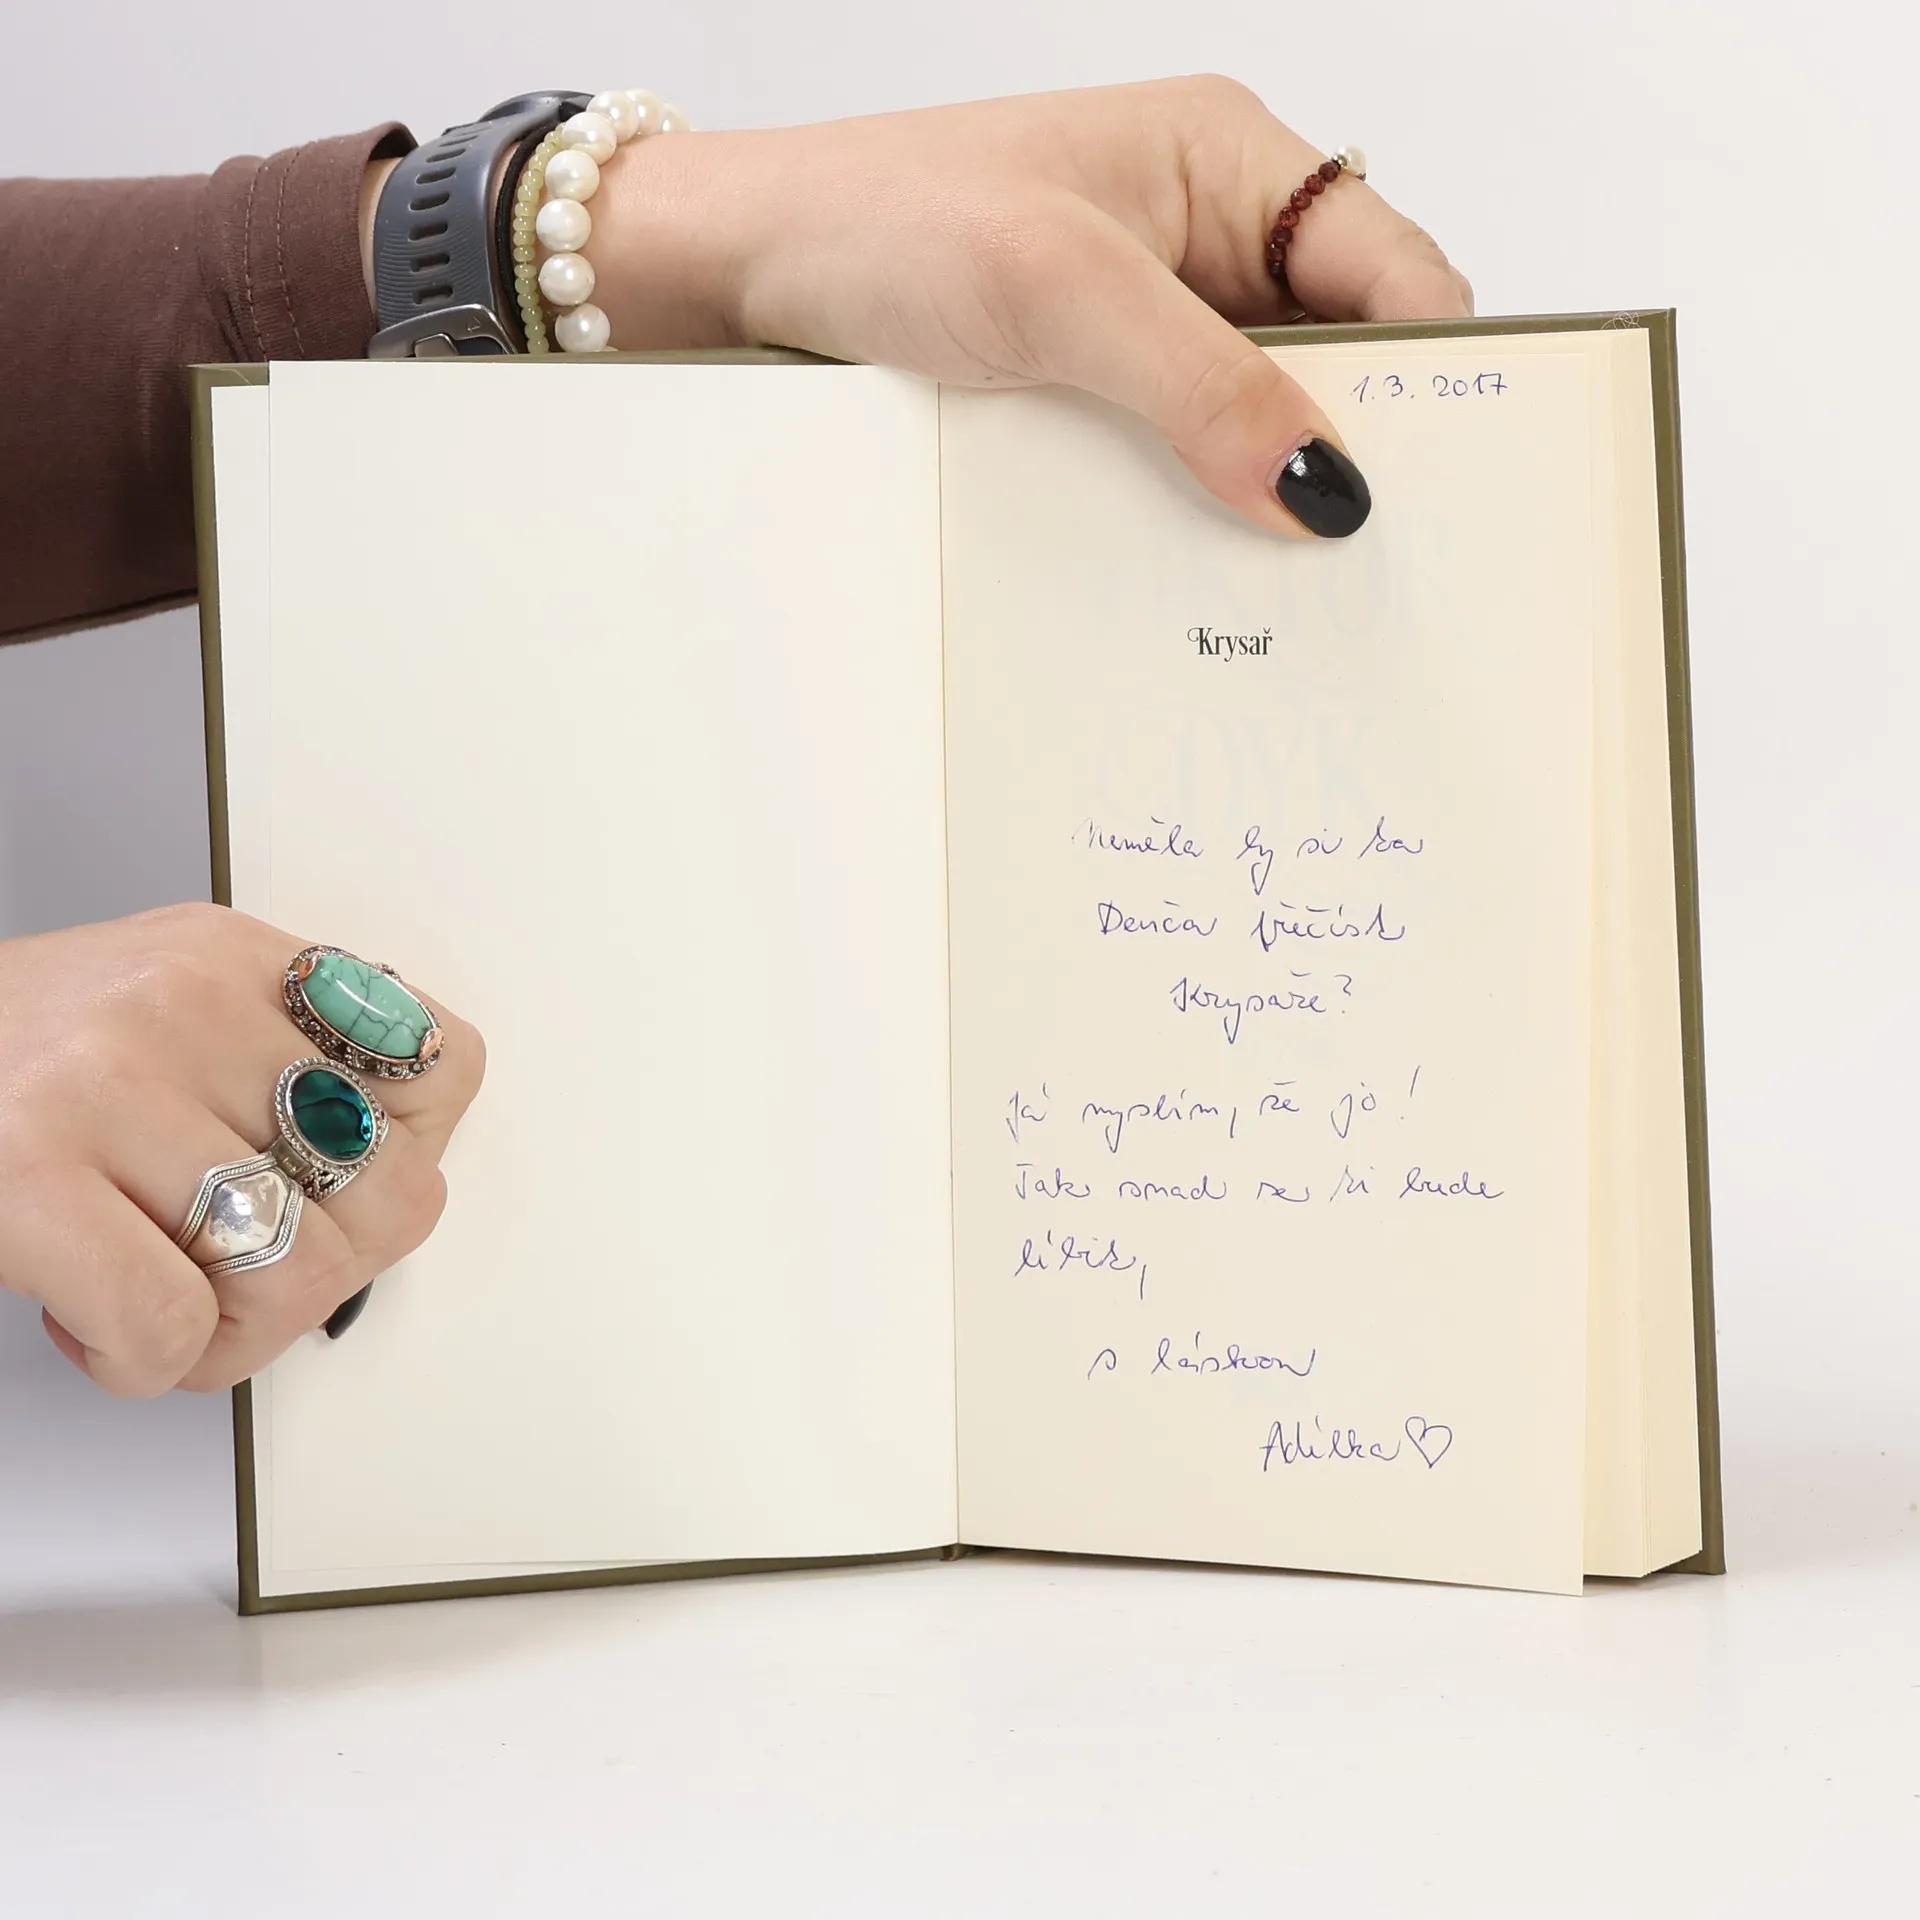 1.3. 2017
Krysař
Neměla by si ta
Denča přečíst
Krysaře?
Já myslím, že jo!
Tak snad se ti bude
líbit,
s láskou
Adélka♡